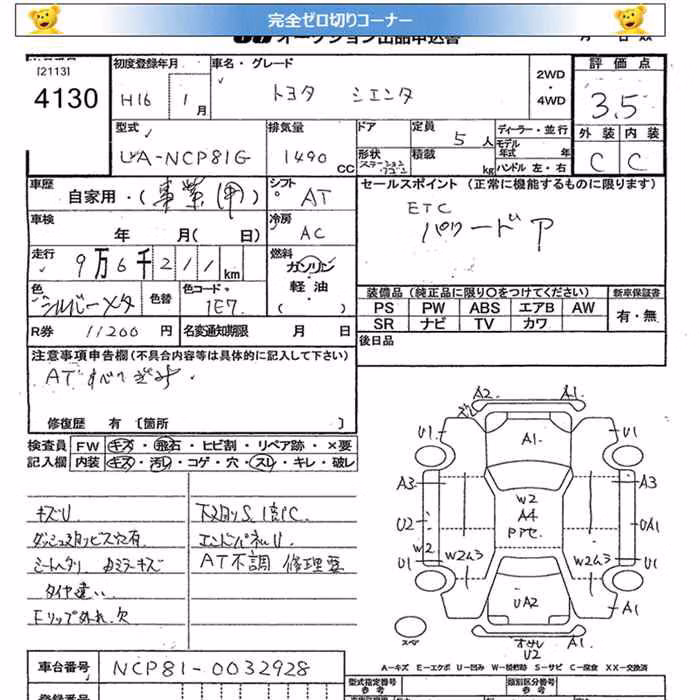 完全ゼロ切りコーナー
オークション出品申込書
[2113]
4130
初度登録年月
H16 1月
車名・グレード
トヨタ シエンタ
2WD
・
4WD
評価点
3.5
外装 内装
C C
型式
UA-NCP81G
排気量
1490 CC
ドア
形状
ステーションワゴン
定員 5人
積載 kg
ディーラー・並行
モデル年式 年
ハンドル 左・右
車歴
自家用・(事業用)
シフト
AT
セールスポイント (正常に機能するものに限ります)
ETC
パワードア
車検
年 月(日)
冷房
AC
走行
9万6千211km
燃料
ガソリン
軽油
( )
色
シルバーメタ
色替
色コード
1E7
装備品(純正品に限り○をつけてください)
PS PW ABS エアB AW
SR ナビ TV カワ
新車保証書
有・無
R券 11200円
名変通知期限 月 日
後日品
注意事項申告欄(不具合内容等は具体的に記入して下さい)
ATすべりぎみ
修復歴 有 〔箇所 〕
検査員記入欄
FW キズ・飛石・ヒビ割・リペア跡・×要
内装 キズ・汚レ・コゲ・穴・スレ・キレ・破レ
キズU
タイヤ違い
Eリップ外れ.欠
下廻りS.1部C.
エンドパネルU.
AT不調 修理要
A2 A1
U1 A1. U1
A3 A3
W2
A4
U2 UA1
W2 U1
W2ム3 W2ム3
U1
UA2
A1
A1.
U2
スペア
A-キズ E-エクボ U-凹み W-補修跡 S-サビ C-腐食 XX-交換済
車台番号 NCP81-0032928
登録番号
型式指定番号
参考
類別区分番号
参考